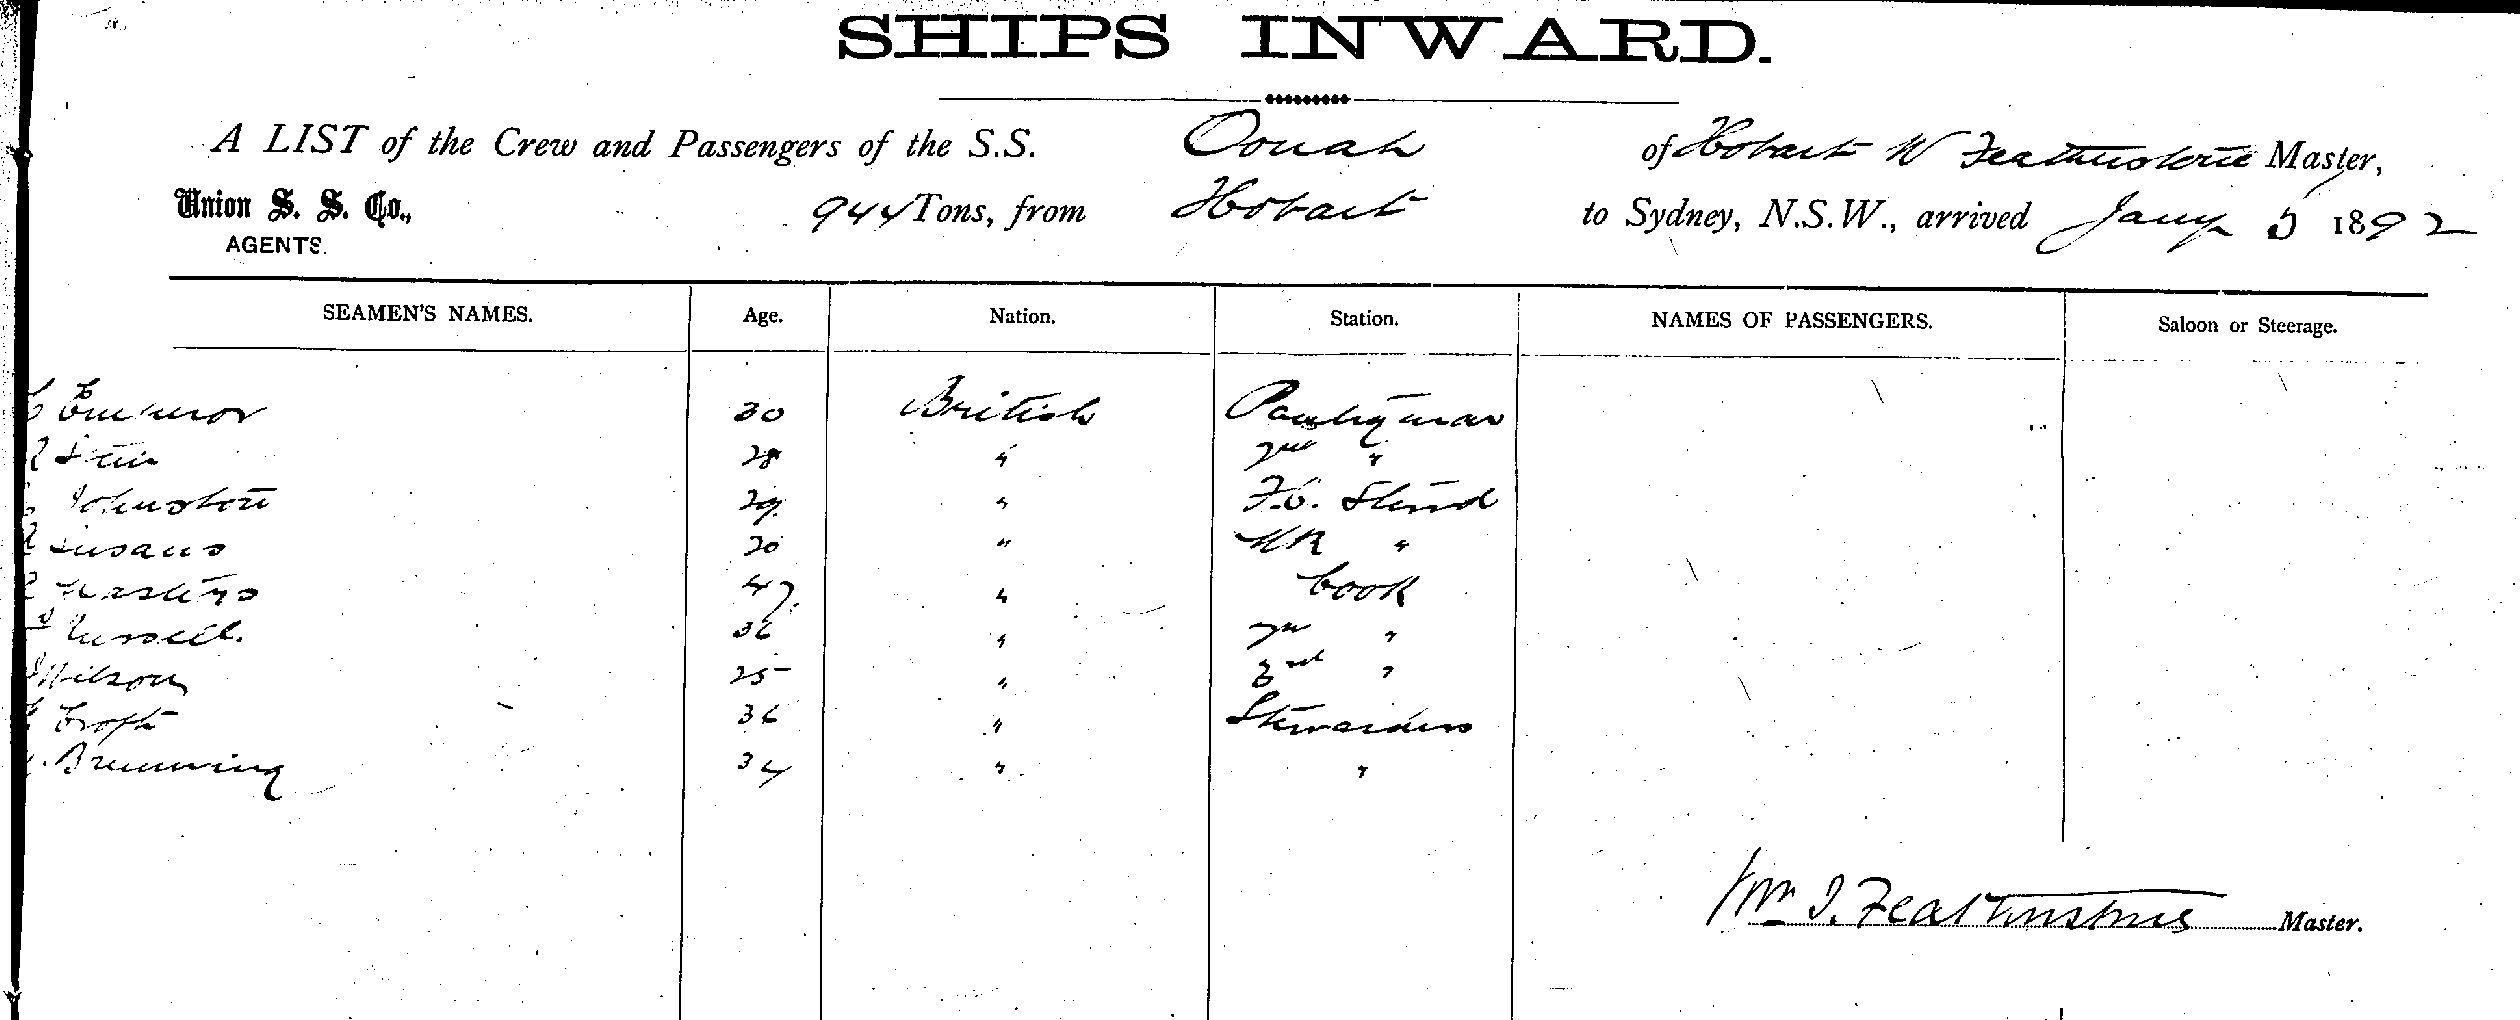 SHIPS INWARD.
A LIST of the Crew and Passengers of the S.S. Oonah of Hobart W Featherstone Master,
Union S. S. Co., 944 Tons, from Hobart to Sydney, N.S.W., arrived Jany 5 1892
AGENTS.
SEAMEN'S NAMES. Age. Nation. Station. NAMES OF PASSENGERS. Saloon or Steerage.
Emperor 30 British Pantryman
28 " 2nd "
Johnston 29 " F.C. Stewd
Susans 20 " "
Masters 47. " Cook
Russell. 36 " 2nd "
Wilson 25 " 3rd "
Croft 36 " Stewardess
34 " "
Wm J. Featherstone Master.